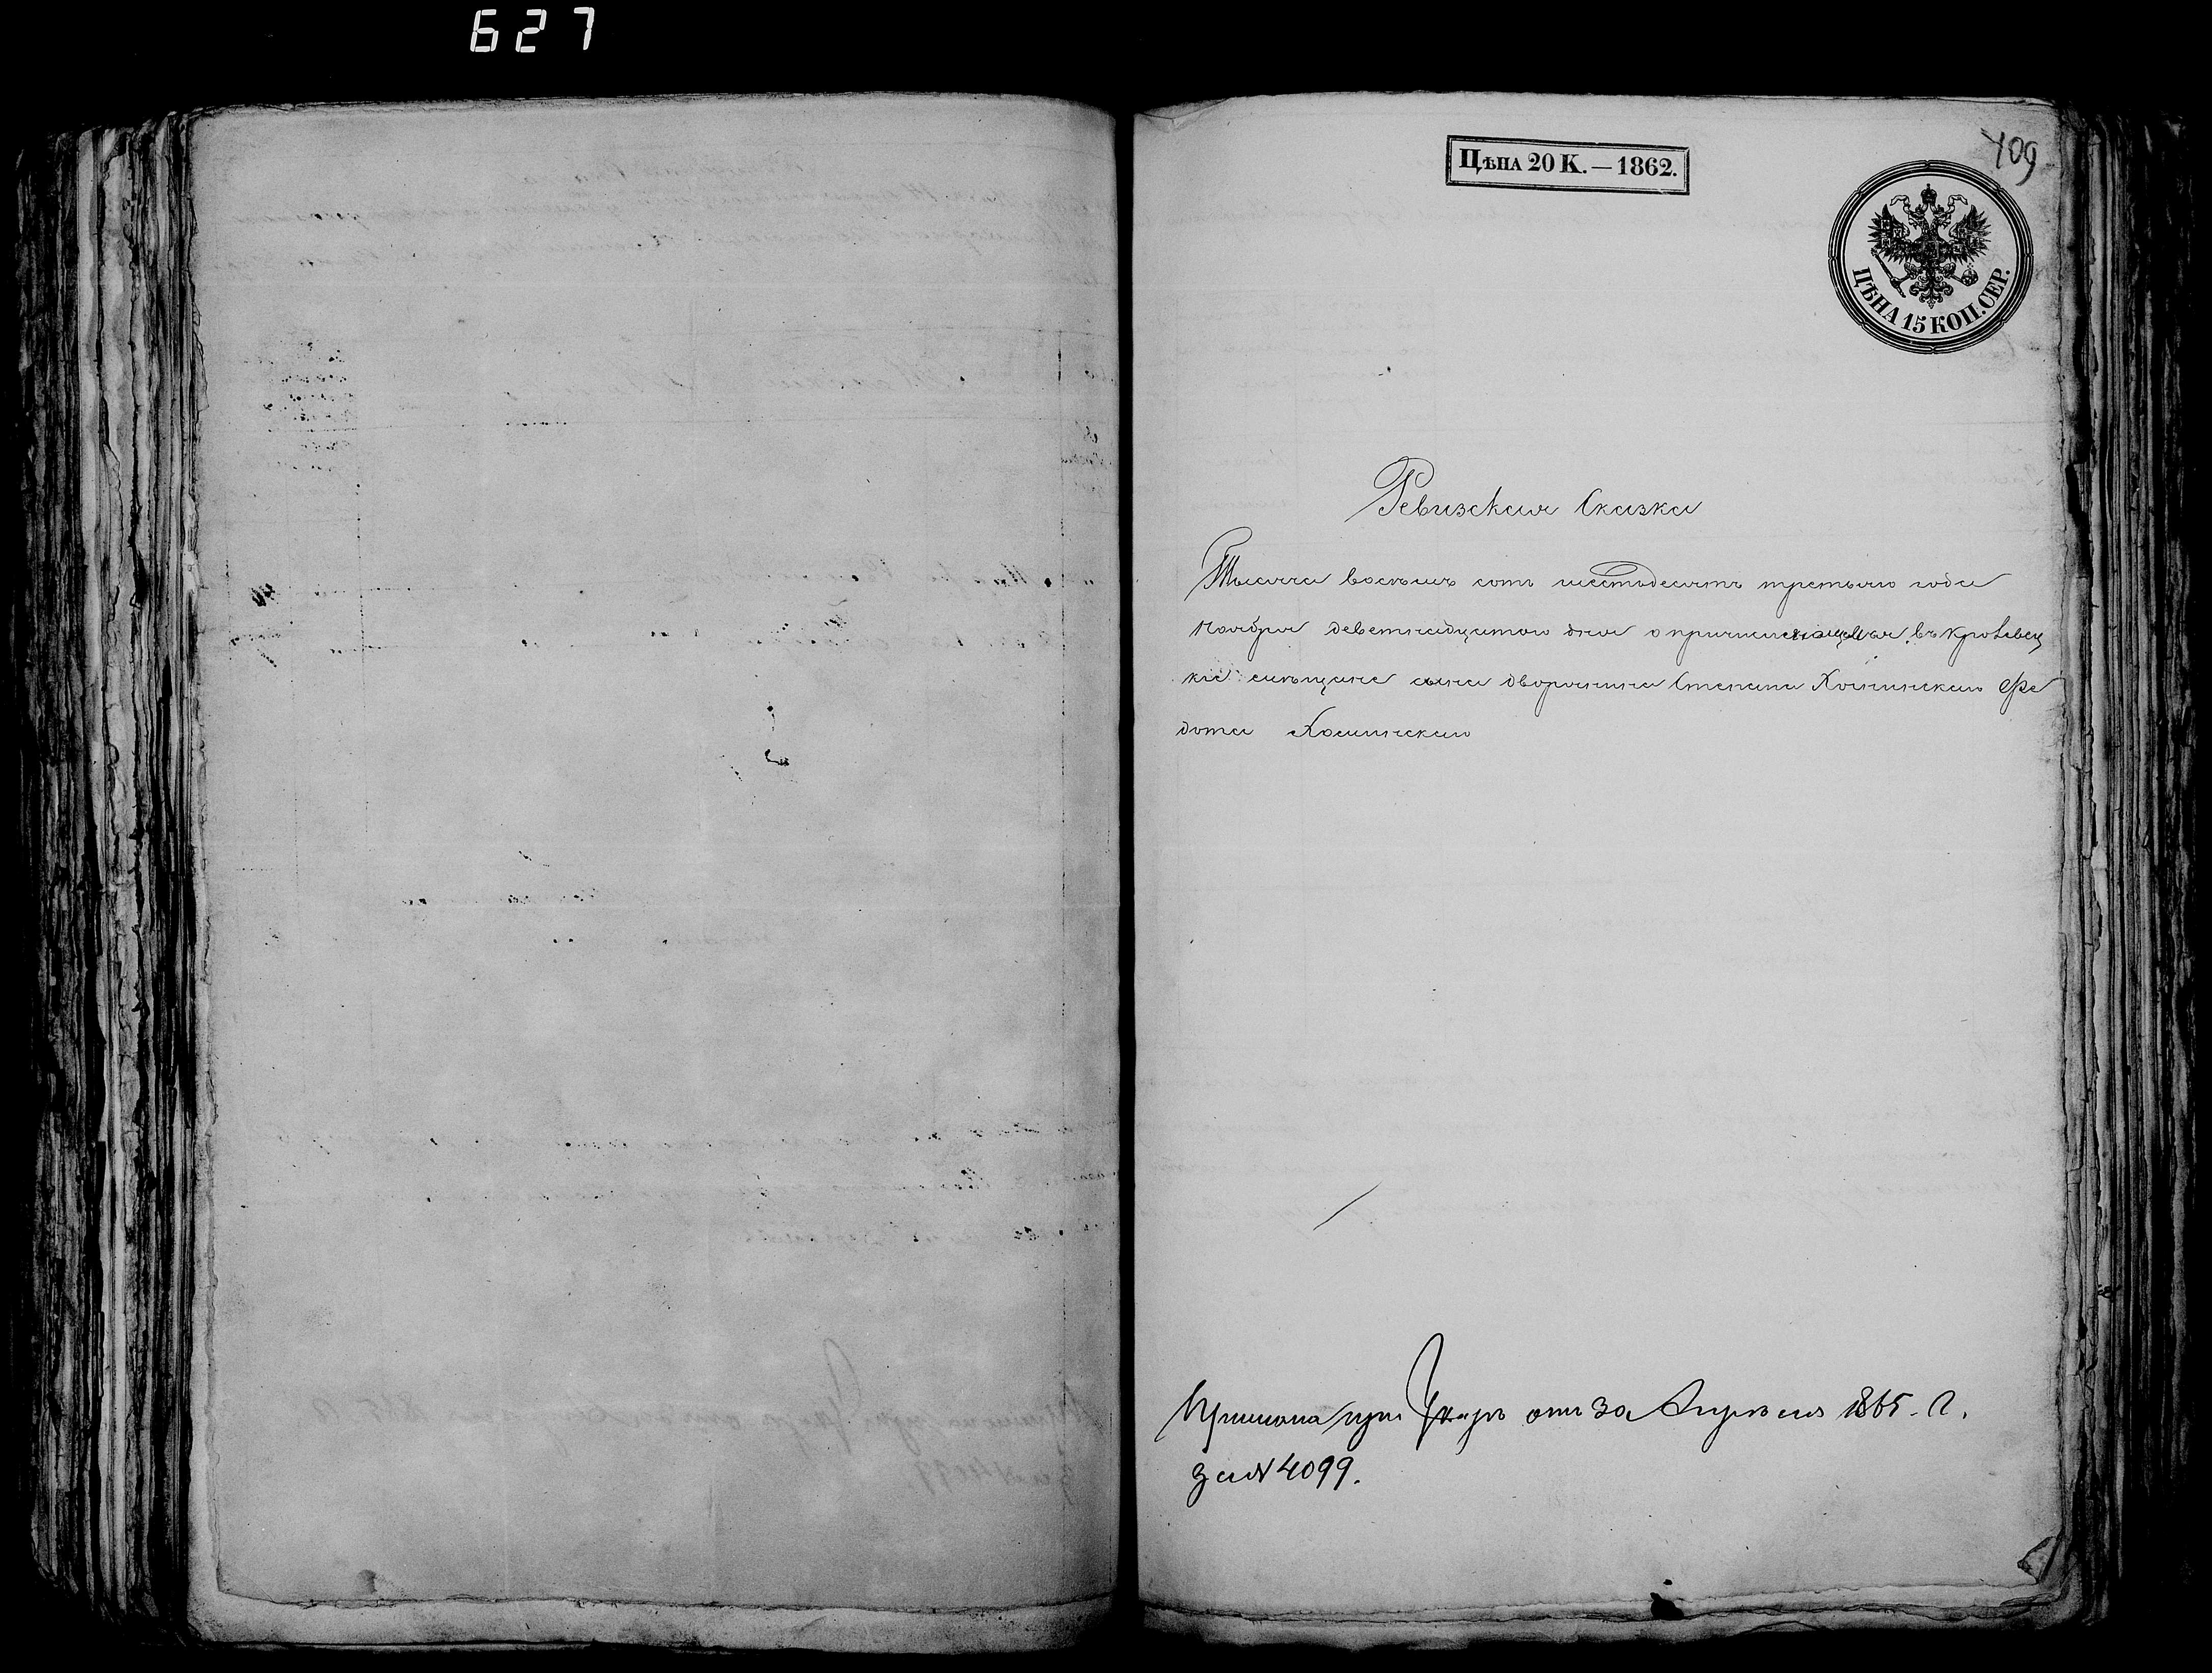 627
409
Цѣна 20 К. — 1862.
ЦѢНА 15 КОП. СЕР.
Ревизская Сказка
Тысяча восемь сотъ шестьдесятъ третьяго года
Ноября деветнадцатого дня о причисляющемся въ Кролевец
кіе мѣщане сына дворянина Степана Хоминскаго Фе
дота Хоминскаго
при Указѣ отъ 30 Апрѣля 1865. г.
за № 4099.